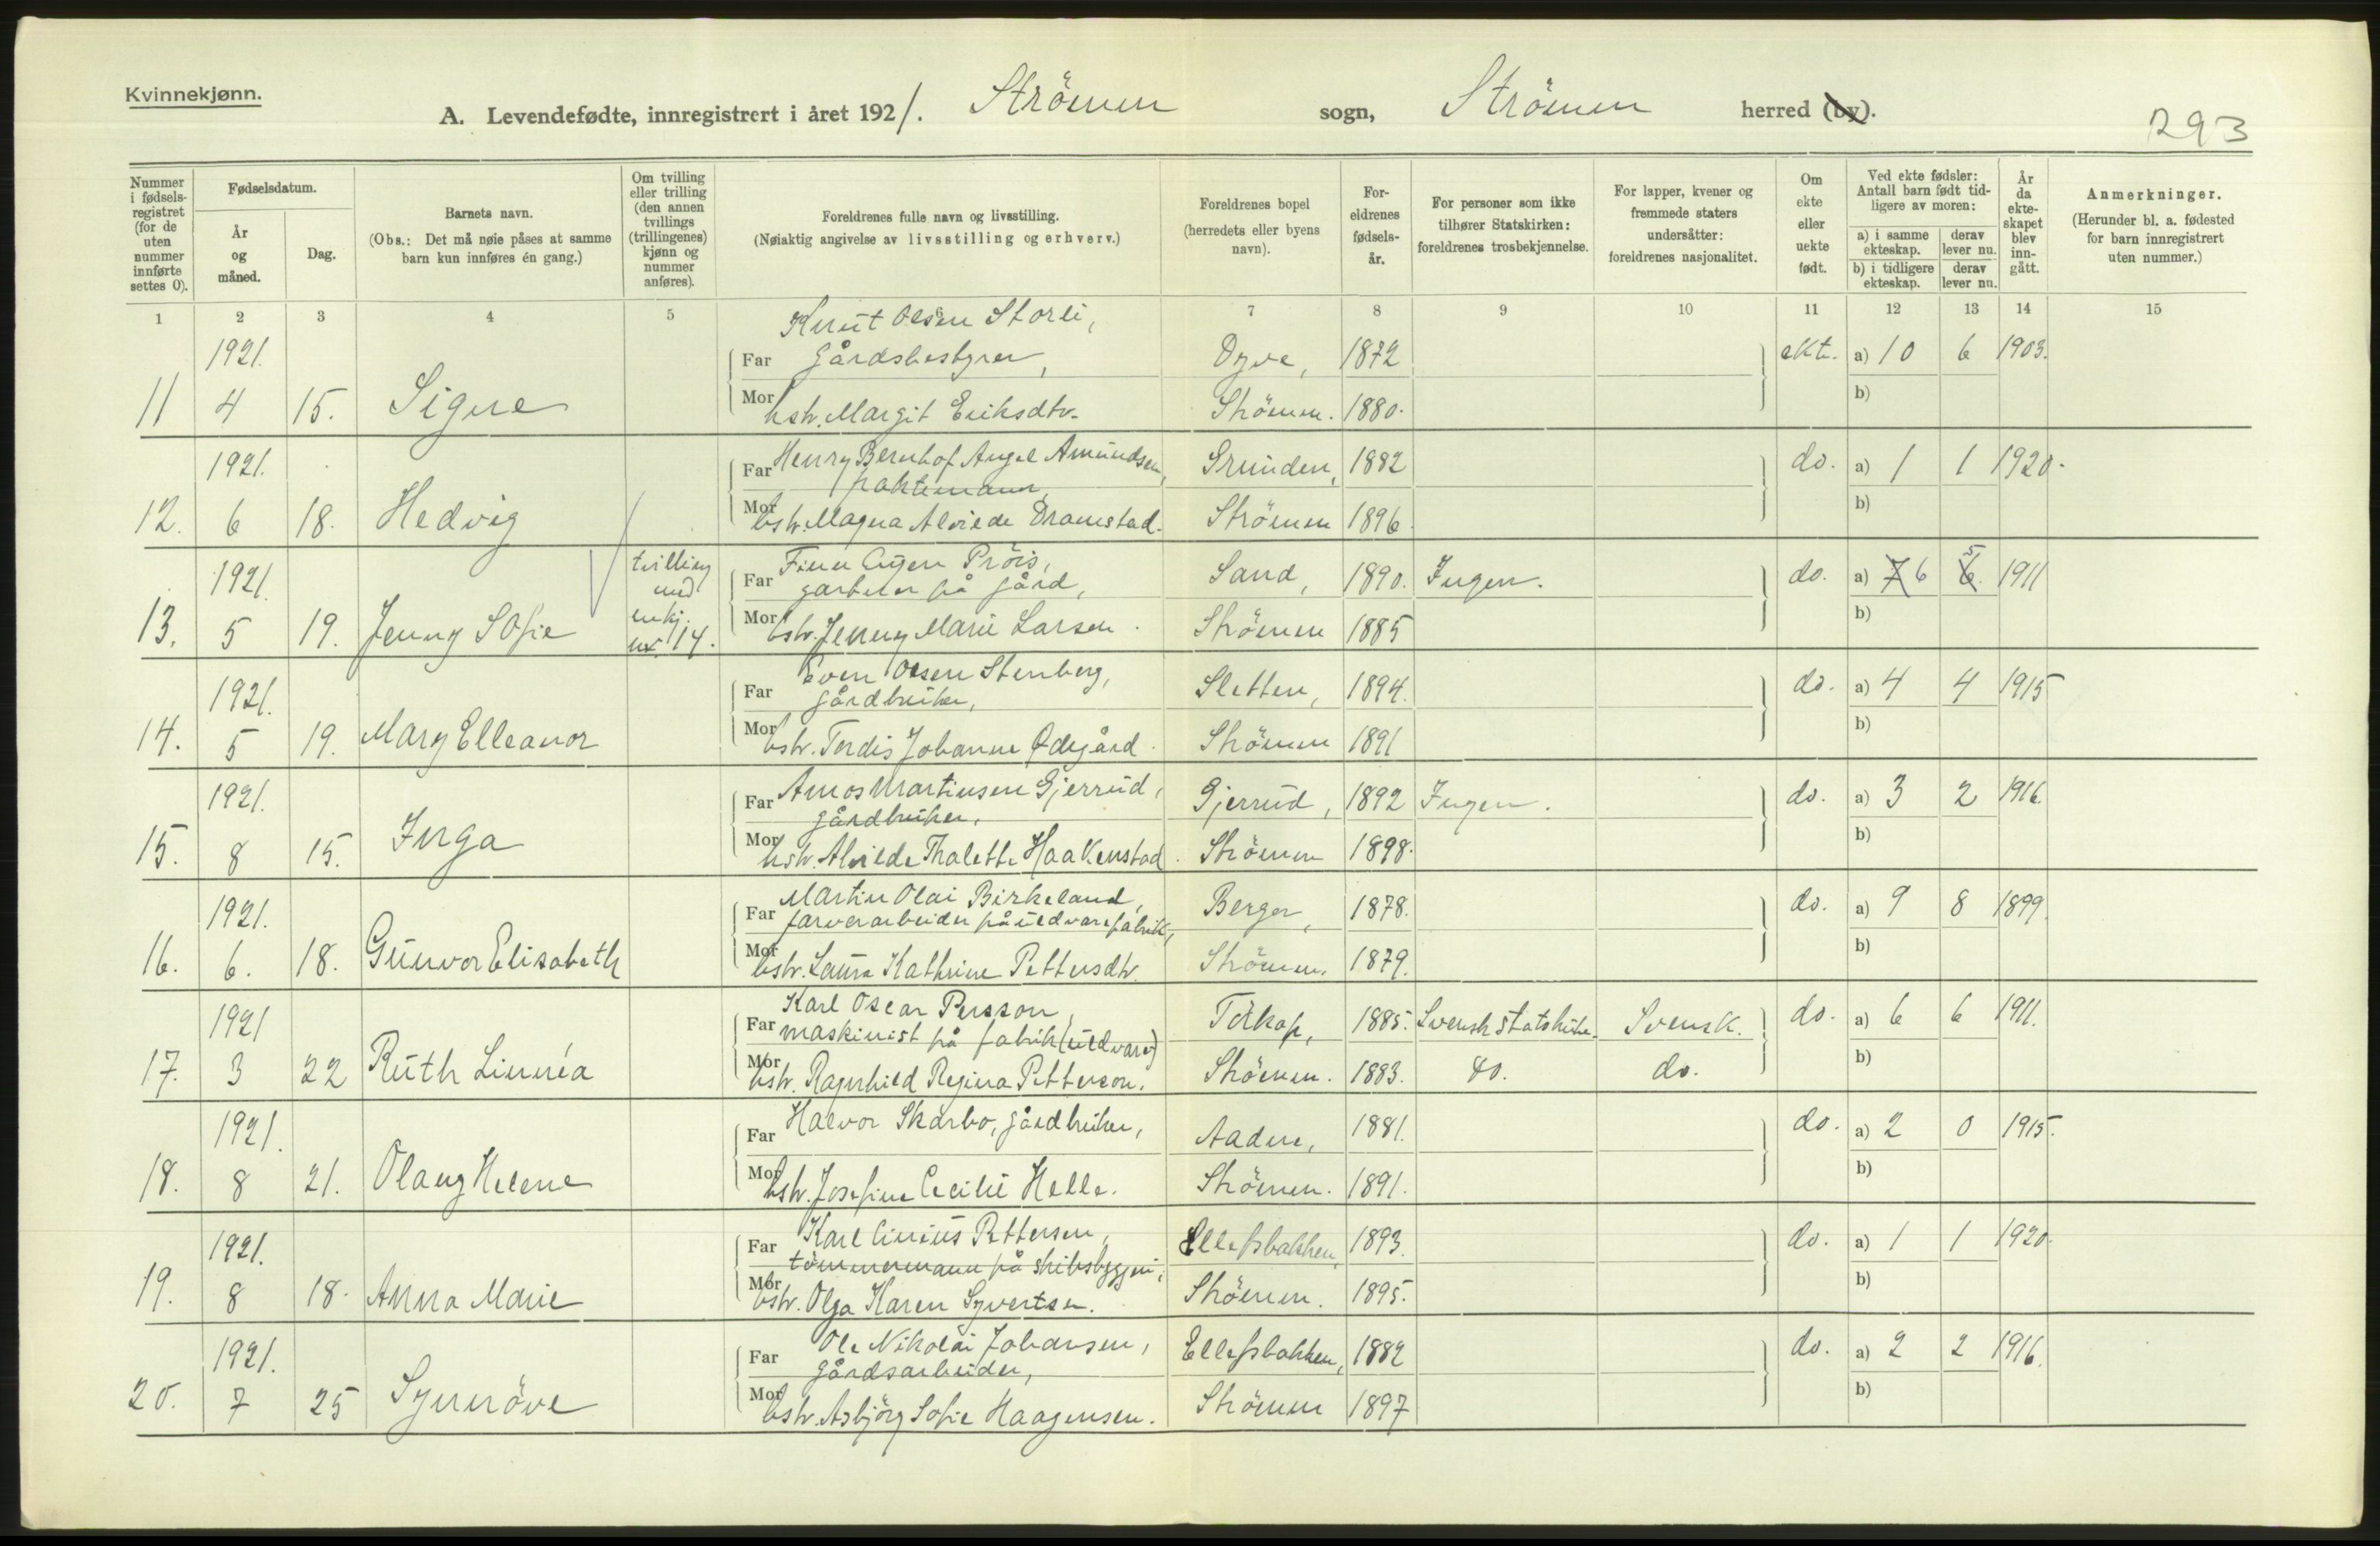 Kvinnekjønn.
A. Levendefødte, innregistrert i året 1921. Strömm sogn, Strömm herred (by).
293
Nummer i fødsels-registret (for de uten nummer innførte settes 0).
Fødselsdatum.
År og måned.
Dag.
Barnets navn.
(Obs.: Det må nøie påses at samme barn kun innføres én gang.)
Om tvilling eller trilling (den annen tvillings (trillingenes) kjønn og nummer anføres).
Foreldrenes fulle navn og livsstilling.
(Nøiaktig angivelse av livsstilling og erhverv.)
Foreldrenes bopel (herredets eller byens navn).
For-eldrenes fødsels-år.
For personer som ikke tilhører Statskirken: foreldrenes trosbekjennelse.
For lapper, kvener og fremmede staters undersåtter: foreldrenes nasjonalitet.
Om ekte eller uekte født.
Ved ekte fødsler: Antall barn født tid-ligere av moren:
a) i samme ekteskap. derav lever nu.
b) i tidligere ekteskap. derav lever nu.
År da ekte-skapet blev inn-gått.
Anmerkninger.
(Herunder bl. a. fødested for barn innregistrert uten nummer.)
1 2 3 4 5 7 8 9 10 11 12 13 14 15
Knut Olsen Storli,
1921. Far gårdsbestyrer, Dyve, 1872 ekte. a) 10 6 1903.
11 4 15. Signe Mor hstr. Margit Eriksdtr. Strömm. 1880. b)
1921. Far Henry Bernhof Angel Amundsen, Grunden, 1882 do. a) 1 1 1920.
12. 6 18. Hedvig Mor hstr. Magna Alvilde Dramstad. Strömm 1896. b)
1921. tvilling Far Finn Pröis, Sand, 1890. Ingen. do. a) 7 6 6 5 1911
på gård,
13. 5 19. Jenny Sofie nr. 14. Mor hstr. Jenny Marie Larsen. Strömm 1885 b)
Even Olsen Stenberg,
1921. Far gårdbruker, Sletten, 1894. do. a) 4 4 1915
14. 5 19. Mary Elleanor Mor hstr. Tordis Johanne Ødegård. Strömm 1891 b)
1921. Far Amos Martinsen Gjerrud, Gjerrud, 1892 Ingen. do. a) 3 2 1916.
gårdbruker,
15. 8 15. Inga Mor hstr. Alvilde Thalette Haakenstad. Strömm 1898. b)
Martin Olai Birkeland,
1921. Far farverarbeider på uldvarefabrik, Berger, 1878. do. a) 9 8 1899.
16. 6. 18. Gunvor Elisabeth Mor hstr. Laura Kathrine Pettersdtr. Strömm. 1879. b)
Karl Oscar Persson,
1921 Far maskinist på fabrik (uldvare) Torkop, 1885. Svensk statskirke. Svensk. do. a) 6 6 1911.
17. 3 22 Ruth Linnéa Mor hstr. Ragnhild Regina Petterson. Strömm. 1883. do. do. b)
1921. Far Halvor Skarbo, gårdbruker, Aadne, 1881. do. a) 2 0 1915.
18. 8 21. Olaug Helene Mor hstr. Josefine Cecilie Helle. Strömm. 1891. b)
1921. Far Karl Linius Pettersen, Ellefsbakken, 1893. do. a) 1 1 1920.
tömmermann på skibsbyggeri,
19. 8 18. Anna Marie Mor hstr. Olga Karen Syvertsen. Strömm. 1895. b)
Ole Nikolai Johansen,
1921. Far gårdsarbeider, Ellefsbakken, 1882 do. a) 2 2 1916.
20. 7 25 Synnöve Mor hstr. Asbjörg Sofie Haagensen. Strömm 1897 b)